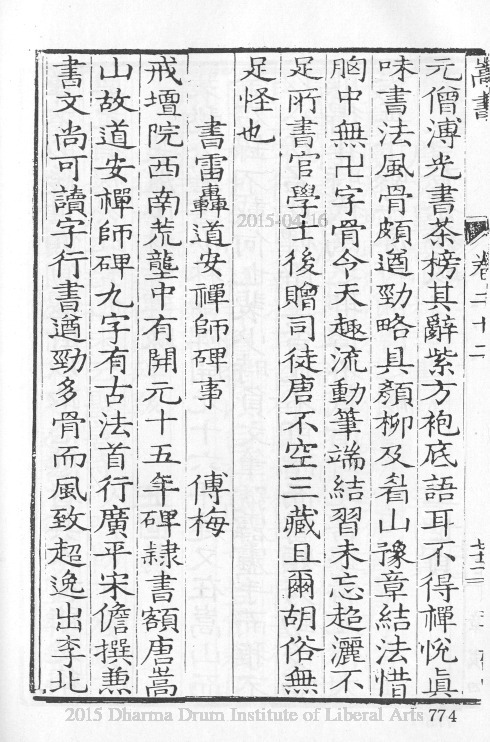 嵩書
卷二十二
元僧溥光書茶榜其辭紫方袍底語耳不得禪悅真
味書法風骨頗遒勁略具顏柳及看山豫章結法惜
胸中無卍字骨今天趣流動筆端結習未忘超灑不
足所書官學士後贈司徒唐不空三藏且爾胡俗無
足怪也
書雷轟道安禪師碑事　傅梅
戒壇院西南荒壟中有開元十五年碑隸書額唐嵩
山故道安禪師碑九字有古法首行廣平宋儋撰兼
書文尚可讀字行書遒勁多骨而風致超逸出李北
2015-04-16
2015 Dharma Drum Institute of Liberal Arts 774